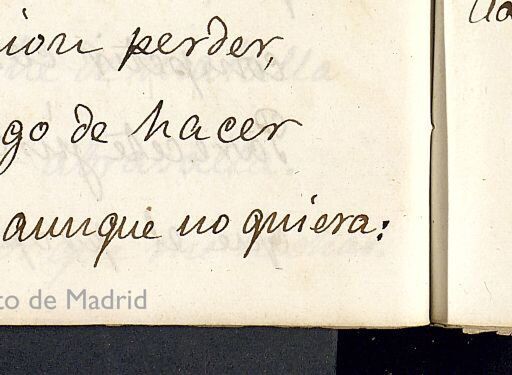 ion perder,
go de hacer
aunque no quiera:
to de Madrid